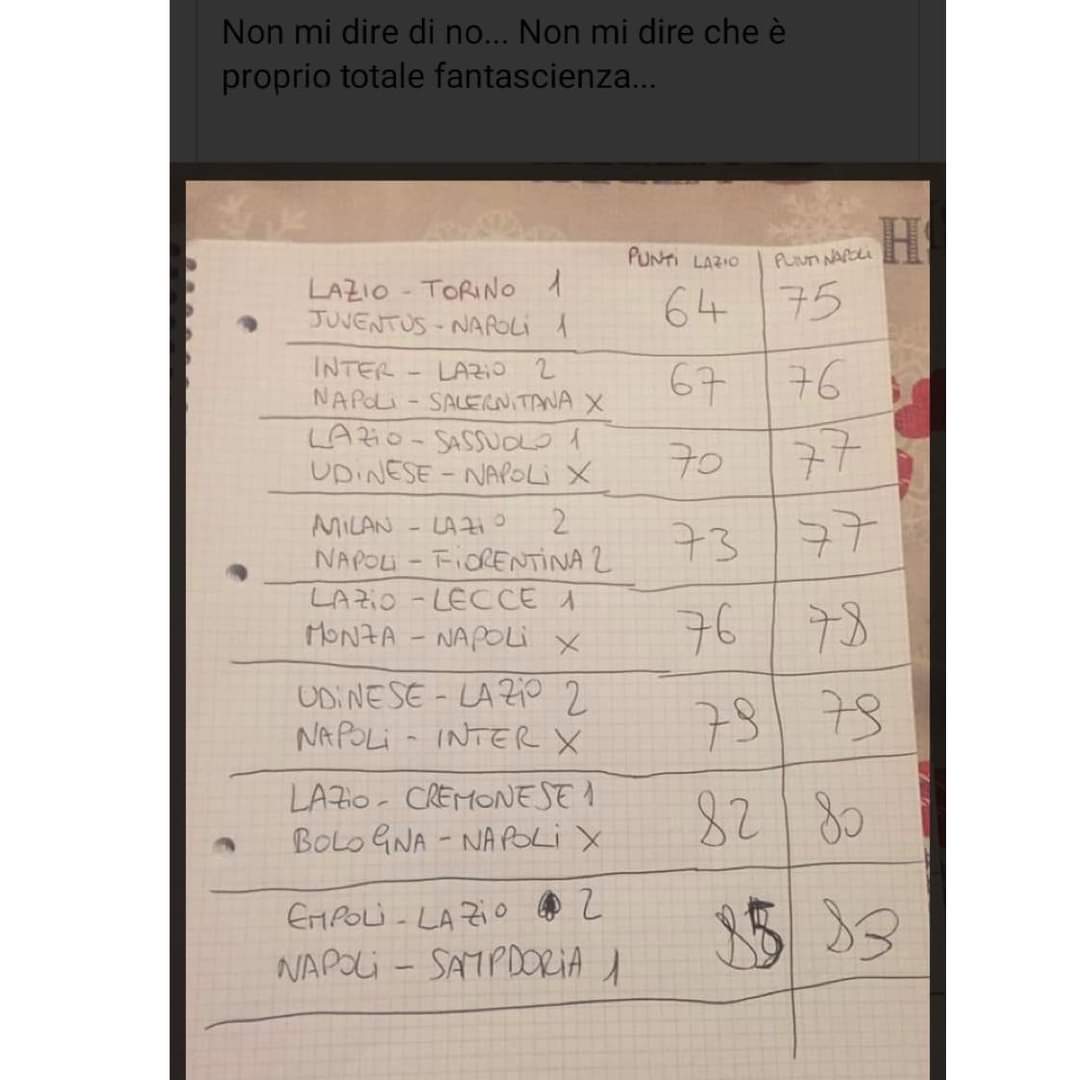 Non mi dire di no... Non mi dire che è
proprio totale fantascienza...
H
PUNTI LAZIO PUNTI NAPOLI
LAZIO - TORINO 1
JUVENTUS - NAPOLI 1
64 75
INTER - LAZIO 2
NAPOLI - SALERNITANA X
67 76
LAZIO - SASSUOLO 1
UDINESE - NAPOLI X
70 77
MILAN - LAZIO 2
NAPOLI - FIORENTINA 2
73 77
LAZIO - LECCE 1
MONZA - NAPOLI X
76 78
UDINESE - LAZIO 2
NAPOLI - INTER X
79 79
LAZIO - CREMONESE 1
BOLOGNA - NAPOLI X
82 80
EMPOLI - LAZIO 2
NAPOLI - SAMPDORIA 1
85 83